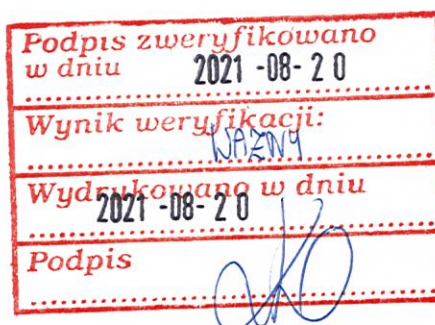 Podpis zweryfikowano
w dniu 2021 -08- 20
Wynik weryfikacji:
WAŻNY
Wydrukowano w dniu
2021 -08- 20
Podpis